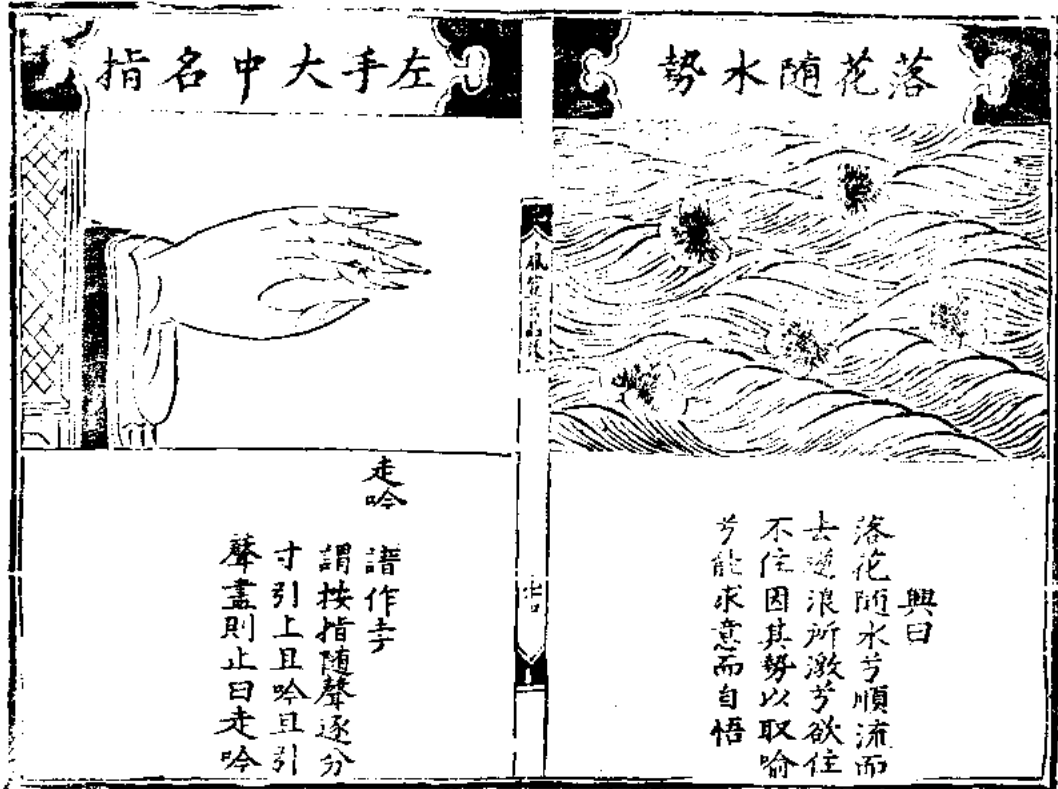 落花随水勢
興曰
落花随水兮順流而
去逆浪所激兮欲住
不住因其勢以取喻
兮能求意而自悟
左手大中名指
走吟
譜作
謂按指随聲逐分
寸引上且吟且引
聲盡則止曰走吟